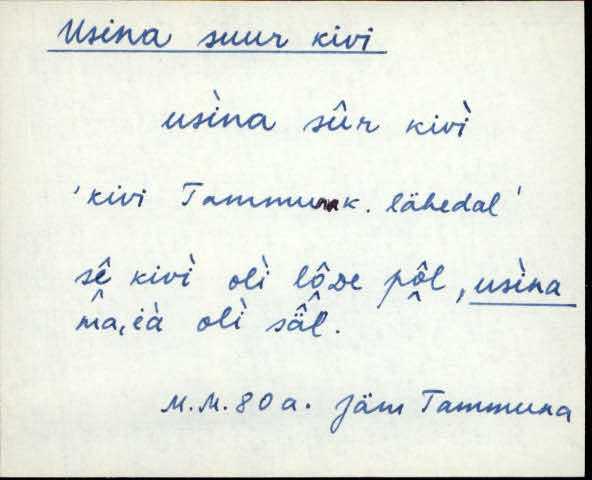 Usina suur kivi
usìna sûr kivì
'kivi Tammuna k. lähedal'
sê kivì olì lôDe pôl, usìna
mâ, ià olì sä̂l.
M.M. 80 a. Jäm Tammuna